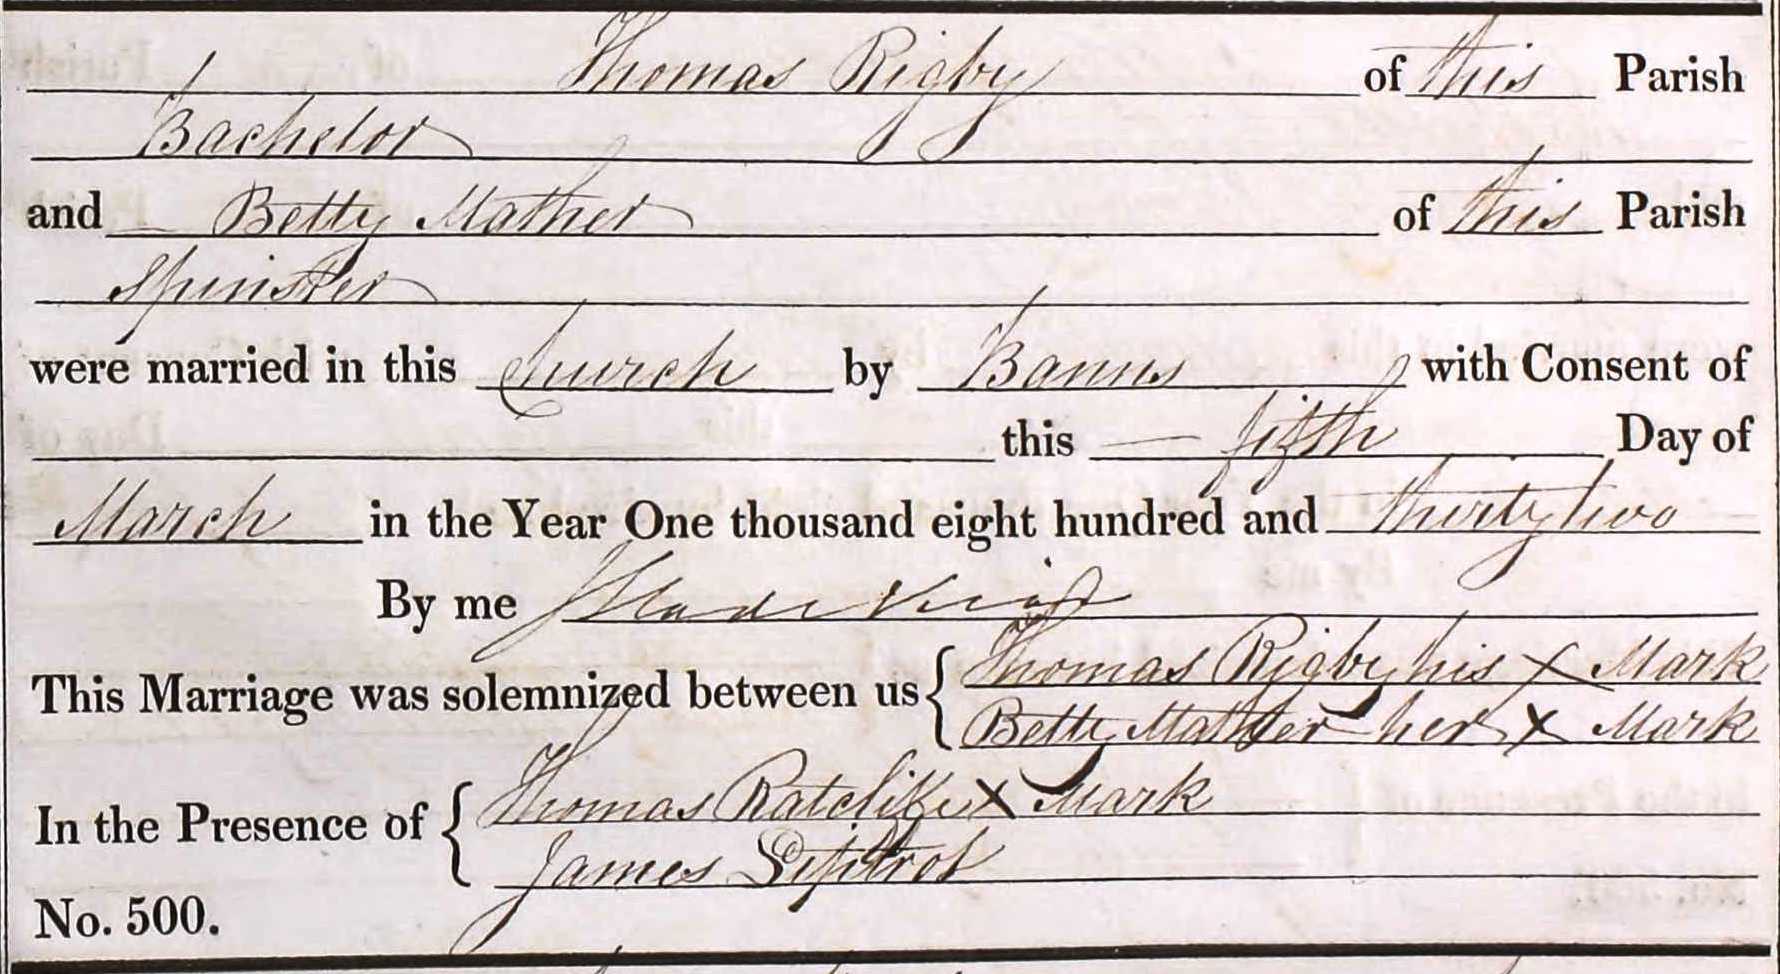 Thomas Rigby of this Parish
Bachelor
and Betty Mather of this Parish
Spinster
were married in this Church by Banns with Consent of
this fifth Day of
March in the Year One thousand eight hundred and thirty two
By me J Slade
This Marriage was solemnized between us { Thomas Rigby his X Mark
Betty Mather her X Mark
In the Presence of { Thomas Ratcliffe X Mark
James
No. 500.